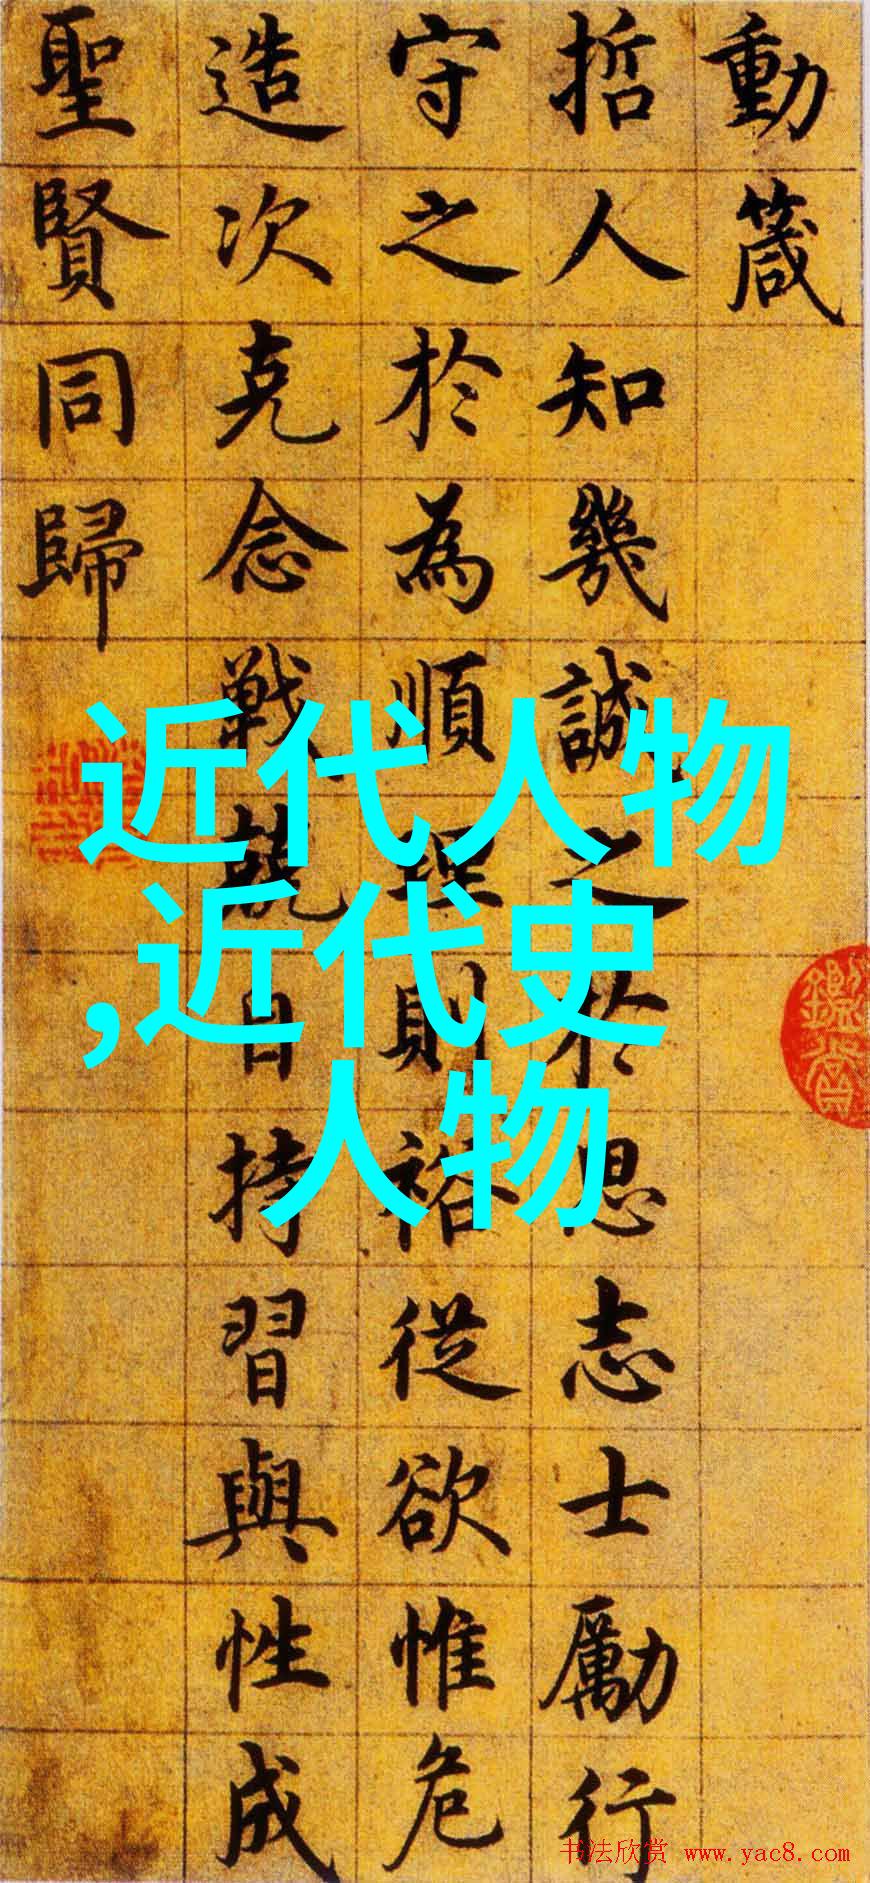 動箴
哲人知幾誠之於思志士勵行
守之於為順理則裕從欲惟危
造次克念戰兢自持習與性成
聖賢同歸
近代人物
,近代史
人物
书法欣赏 www.yac8.com